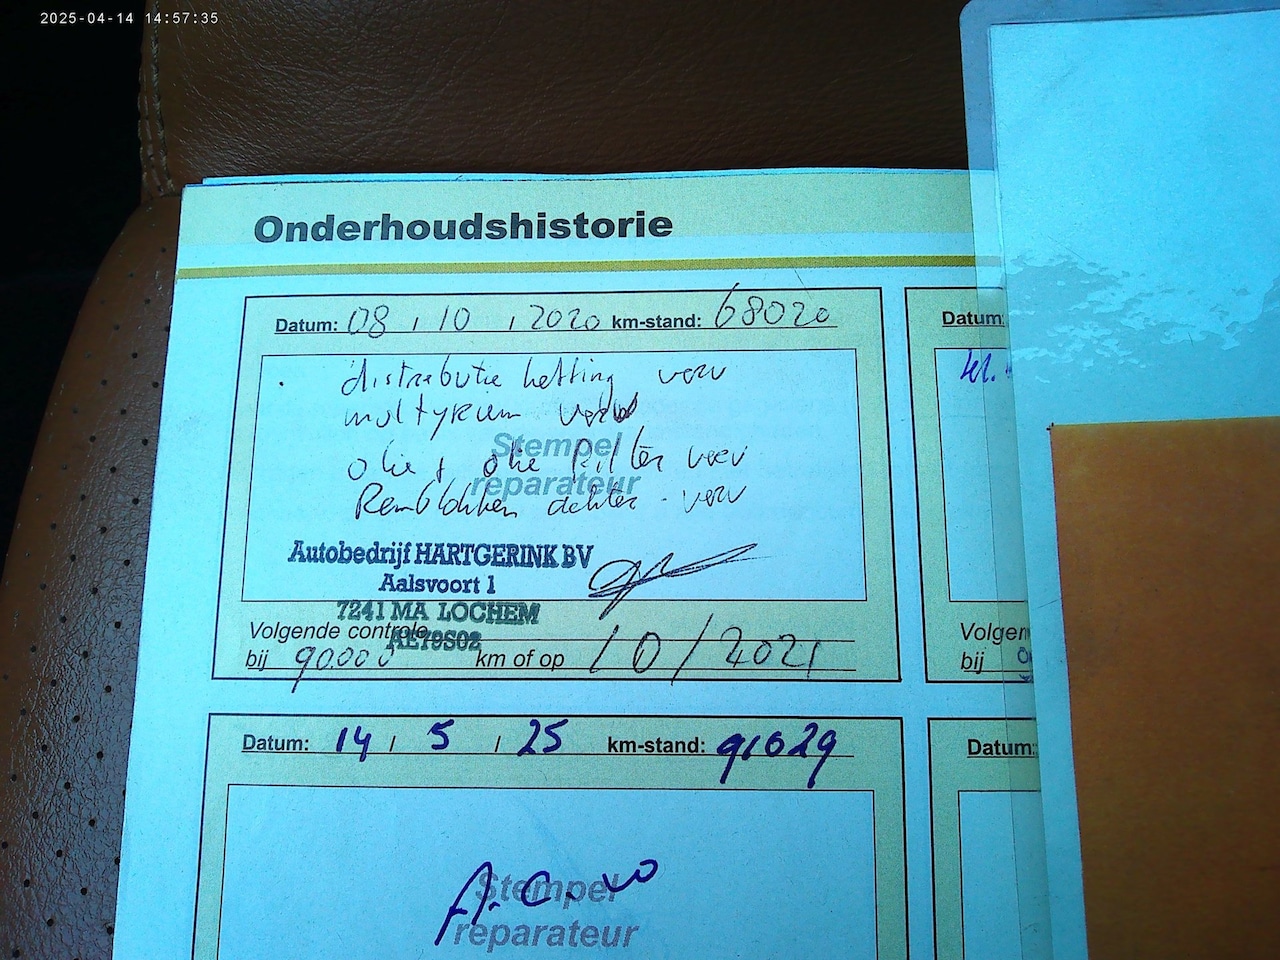 2025-04-14 14:57:35
Onderhoudshistorie
Datum: 08 / 10 / 2020 km-stand: 68020
distributie ketting verv
multyriem verv
Stempel
olie + olie filter verv
reparateur
Remblokken achter verv
Autobedrijf HARTGERINK BV
Aalsvoort 1
7241 MA LOCHEM
AE79S02
Volgende controle
bij 90.000 km of op 10/2021
Datum: 14 / 5 / 25 km-stand: 91029
Stempel
A.C.
reparateur
Datum:
kl.
Volgen
bij
Datum: